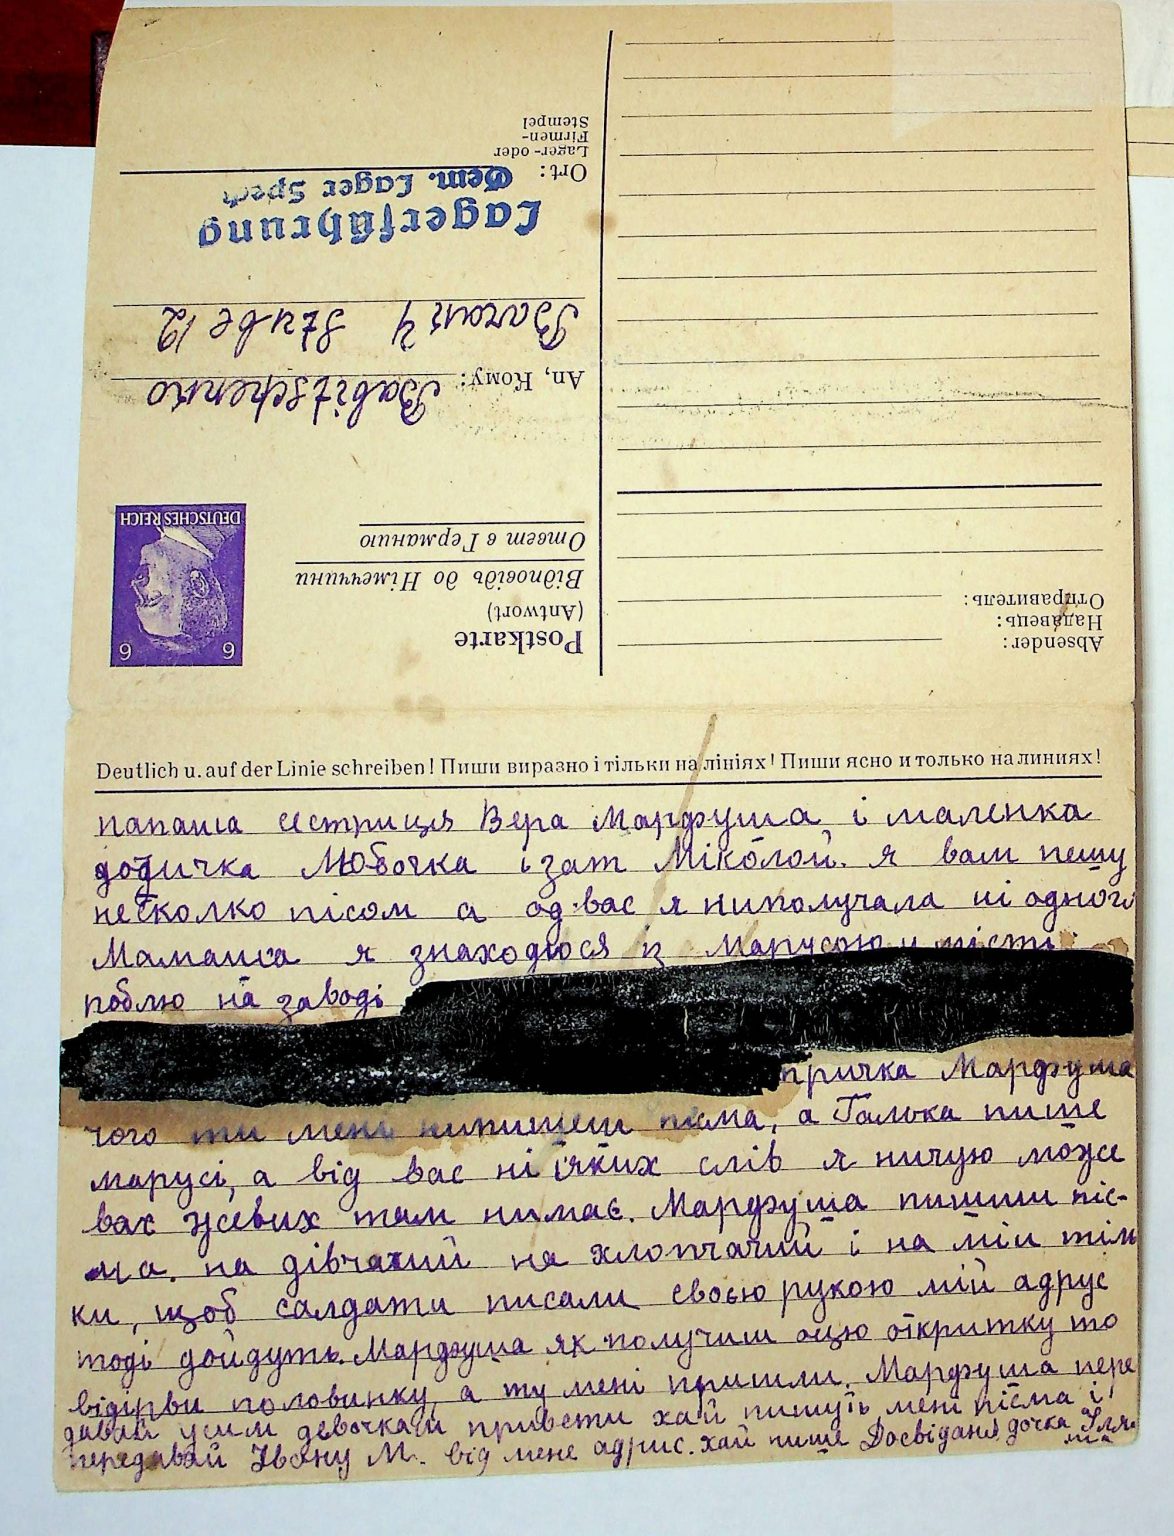 Postkarte
(Antwort)
Відповідь до Німеччини
Ответ в Германию
6 6
DEUTSCHES REICH
An, Кому: Babitschenko
Barak 4 Stube 12
Lagerführung
Gem. Lager Spech
Ort:
Lager- oder
Firmen-
Stempel
Absender:
Надавець:
Отправитель:
Deutlich u. auf der Linie schreiben! Пиши виразно і тільки на лініях! Пиши ясно и только на линиях!
папаша сестриця Вера Марфуша і маленка
дочичка Любочка і зат Міколой. я вам пешу
несколко пісом а од вас я ниполучала ні одного
Мамаша я знаходюся із Марусою у місті
роблю на заводі
причка Марфуша
чого ти мені нипишеш пісма, а Галька пише
марусі, а від вас ні їяких слів я ничую може
вах усевих там нимає. Марфуша пишии піс-
ма. на дівчачий на хлопчачий і на мій тіль
ки, щоб салдати писали своєю рукою мій адрус
тоді дойдуть. Марфуша як получиш оцю откритку то
відірви половинку, а ту мені пришли. Марфуша пере
давай усим девочкам привети хай пишуть мені пісма і
передавай Івану М. від мене адрис. хай пише Досвіданя дочка